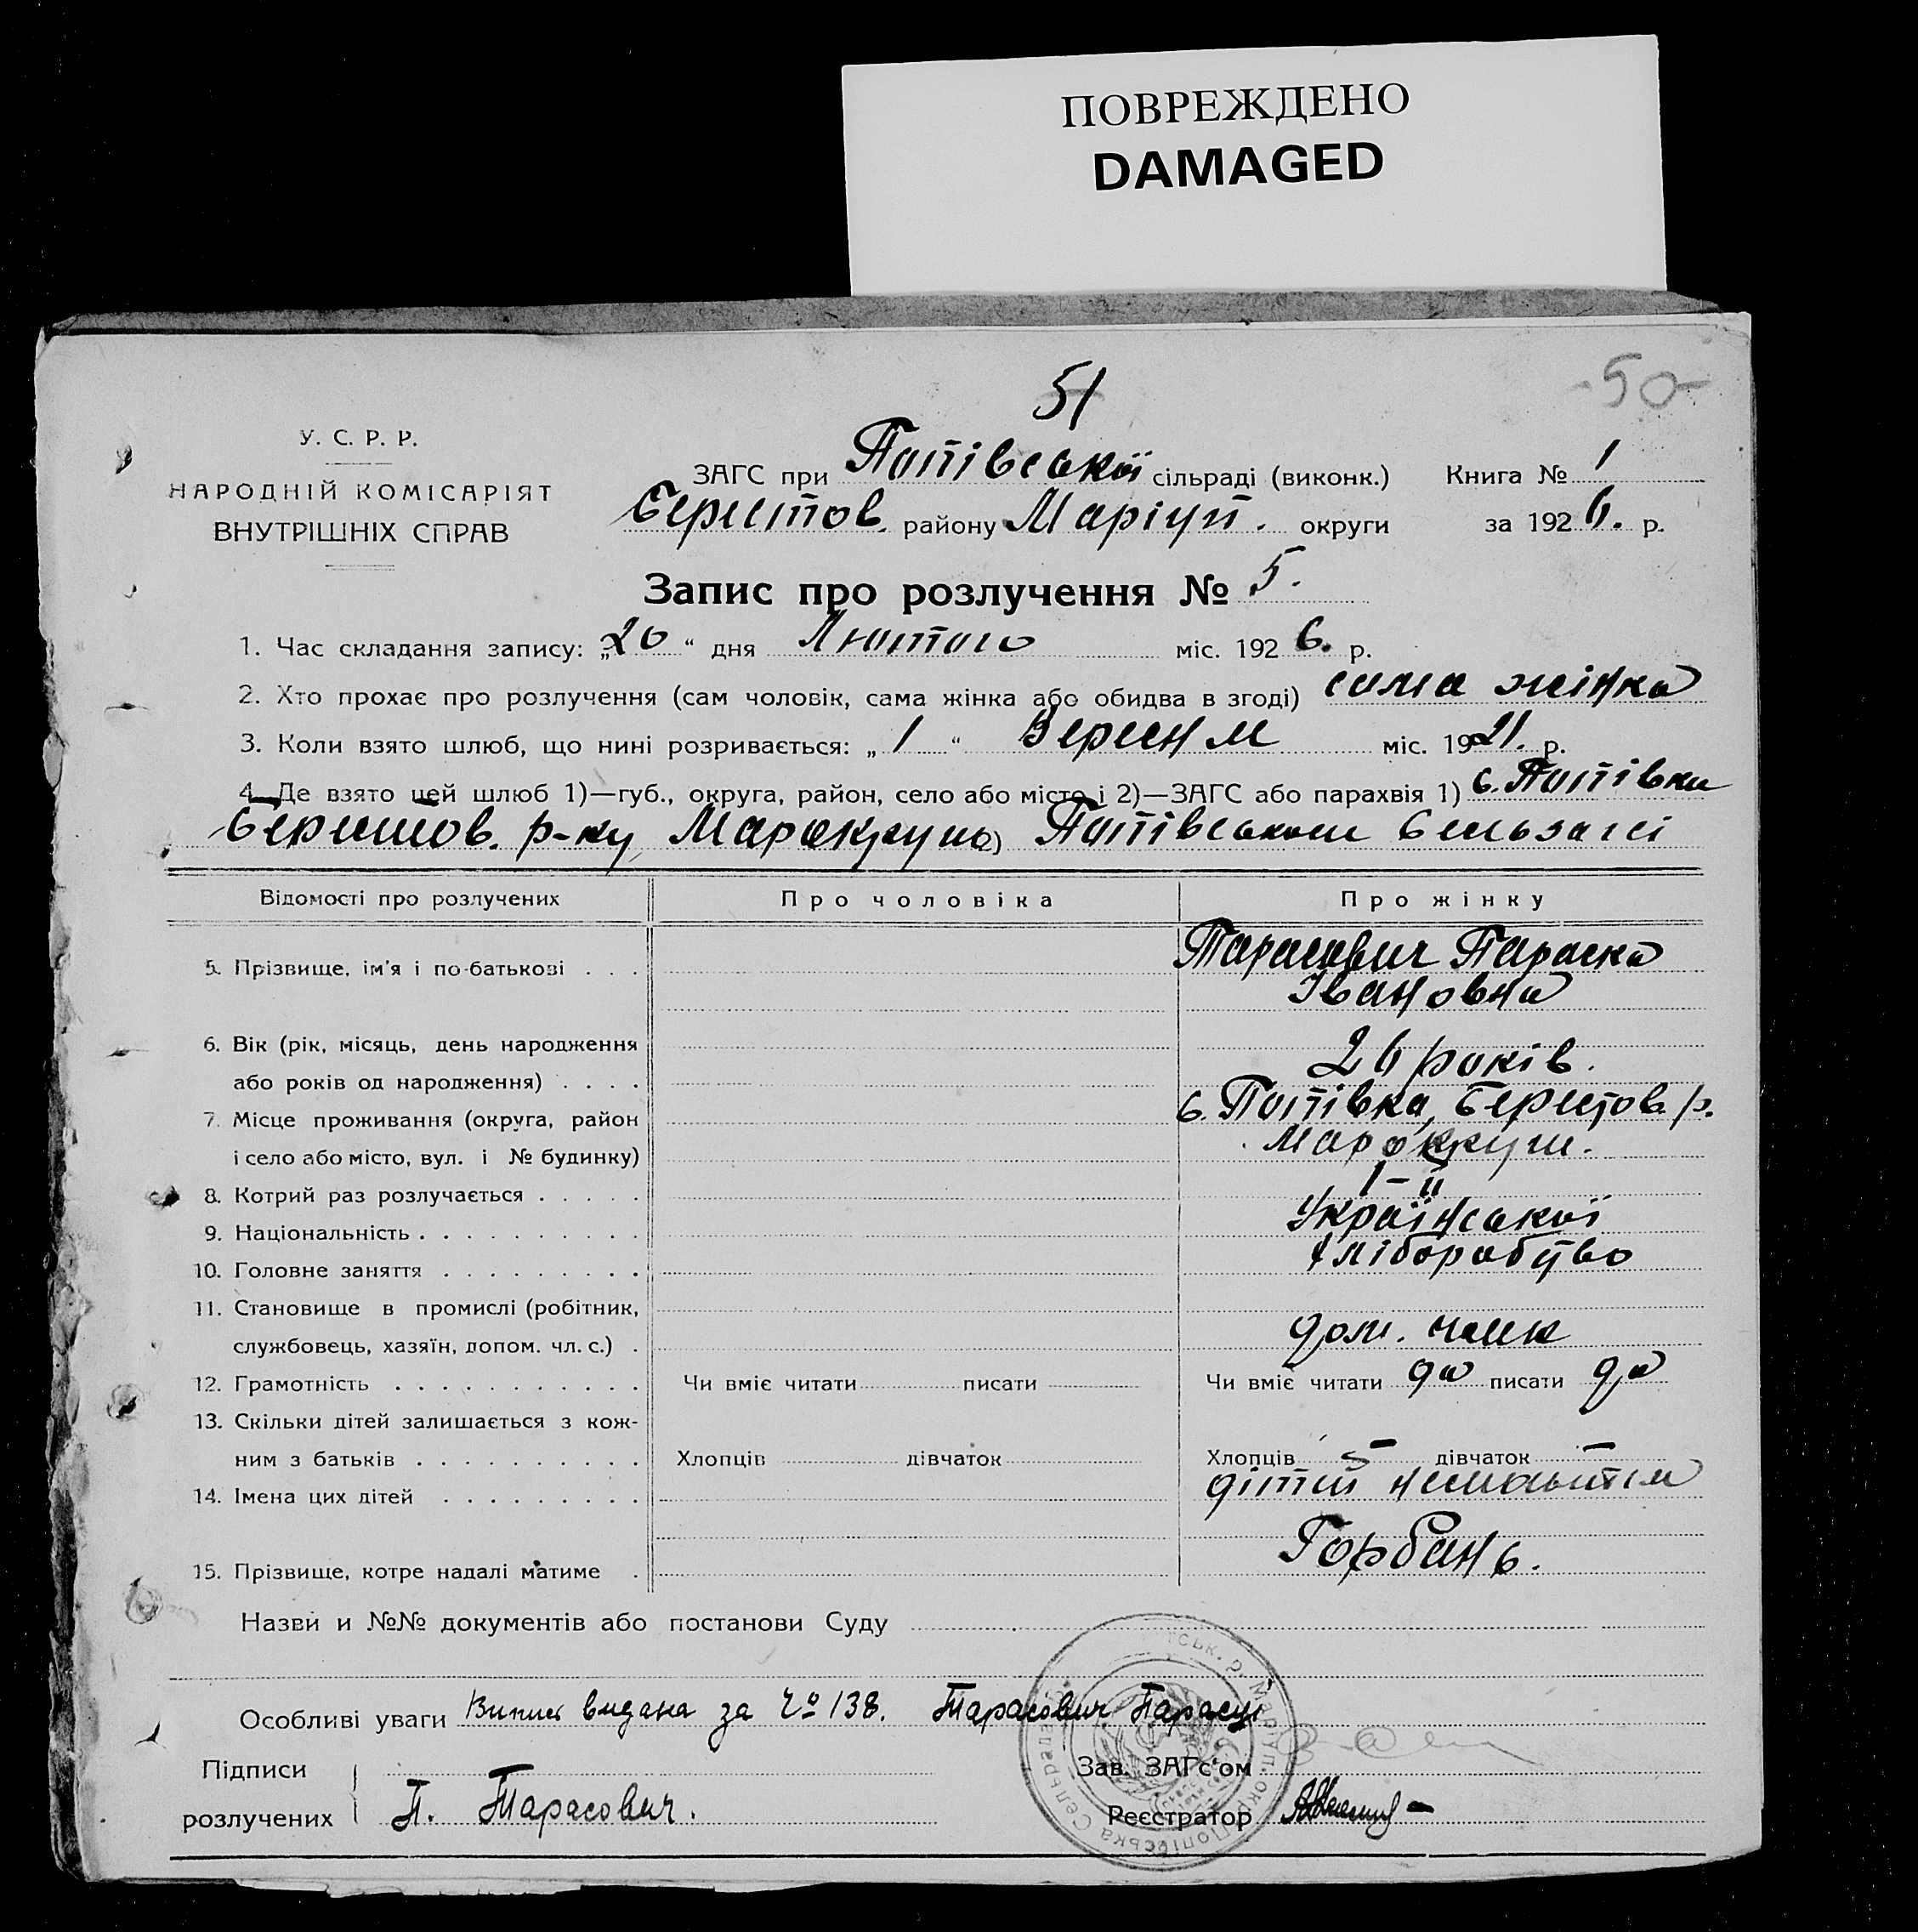 ПОВРЕЖДЕНО
DAMAGED
51
-50-
У. С. Р. Р.
НАРОДНІЙ КОМІСАРІЯТ
ВНУТРІШНІХ СПРАВ
ЗАГС при Попівської сільраді (виконк.) Книга № 1
Берестов. району Маріуп. округи за 1926. р.
Запис про розлучення № 5.
1. Час складання запису: „20“ дня Лютого міс. 1926. р.
2. Хто прохає про розлучення (сам чоловік, сама жінка або обидва в згоді) сама жінка
3. Коли взято шлюб, що нині розривається: „1“ Вересня міс. 1921. р.
4. Де взято цей шлюб 1)—губ., округа, район, село або місто і 2)—ЗАГС або парахвія 1) с. Попівка
Берестов. р-ну, 2) Попівському
Відомості про розлучених Про чоловіка Про жінку
5. Прізвище, ім'я і по-батькові . . . Тарасович Параска
Івановна
6. Вік (рік, місяць, день народження
або років од народження) . . . . 26 років.
7. Місце проживання (округа, район с. Попівка, Берестов. р.
і село або місто, вул. і № будинку) Марокруги.
8. Котрий раз розлучається . . . . . 1-й
9. Національність . . . . . . . . . . Української
10. Головне заняття . . . . . . . . . хліборобство
11. Становище в промислі (робітник,
службовець, хазяїн, допом. чл. с.) . дом. член
12. Грамотність . . . . . . . . . . . Чи вміє читати писати Чи вміє читати да писати да
13. Скільки дітей залишається з кож-
ним з батьків . . . . . . . . . . Хлопців дівчаток Хлопців — дівчаток —
14. Імена цих дітей . . . . . . . . . дітей
15. Прізвище, котре надалі матиме . Горбань.
Назви и №№ документів або постанови Суду
Особливі уваги Випис видана за № 138. Тарасович Парасці
Підписи Зав. ЗАГс'ом
розлучених П. Тарасович. Реєстратор